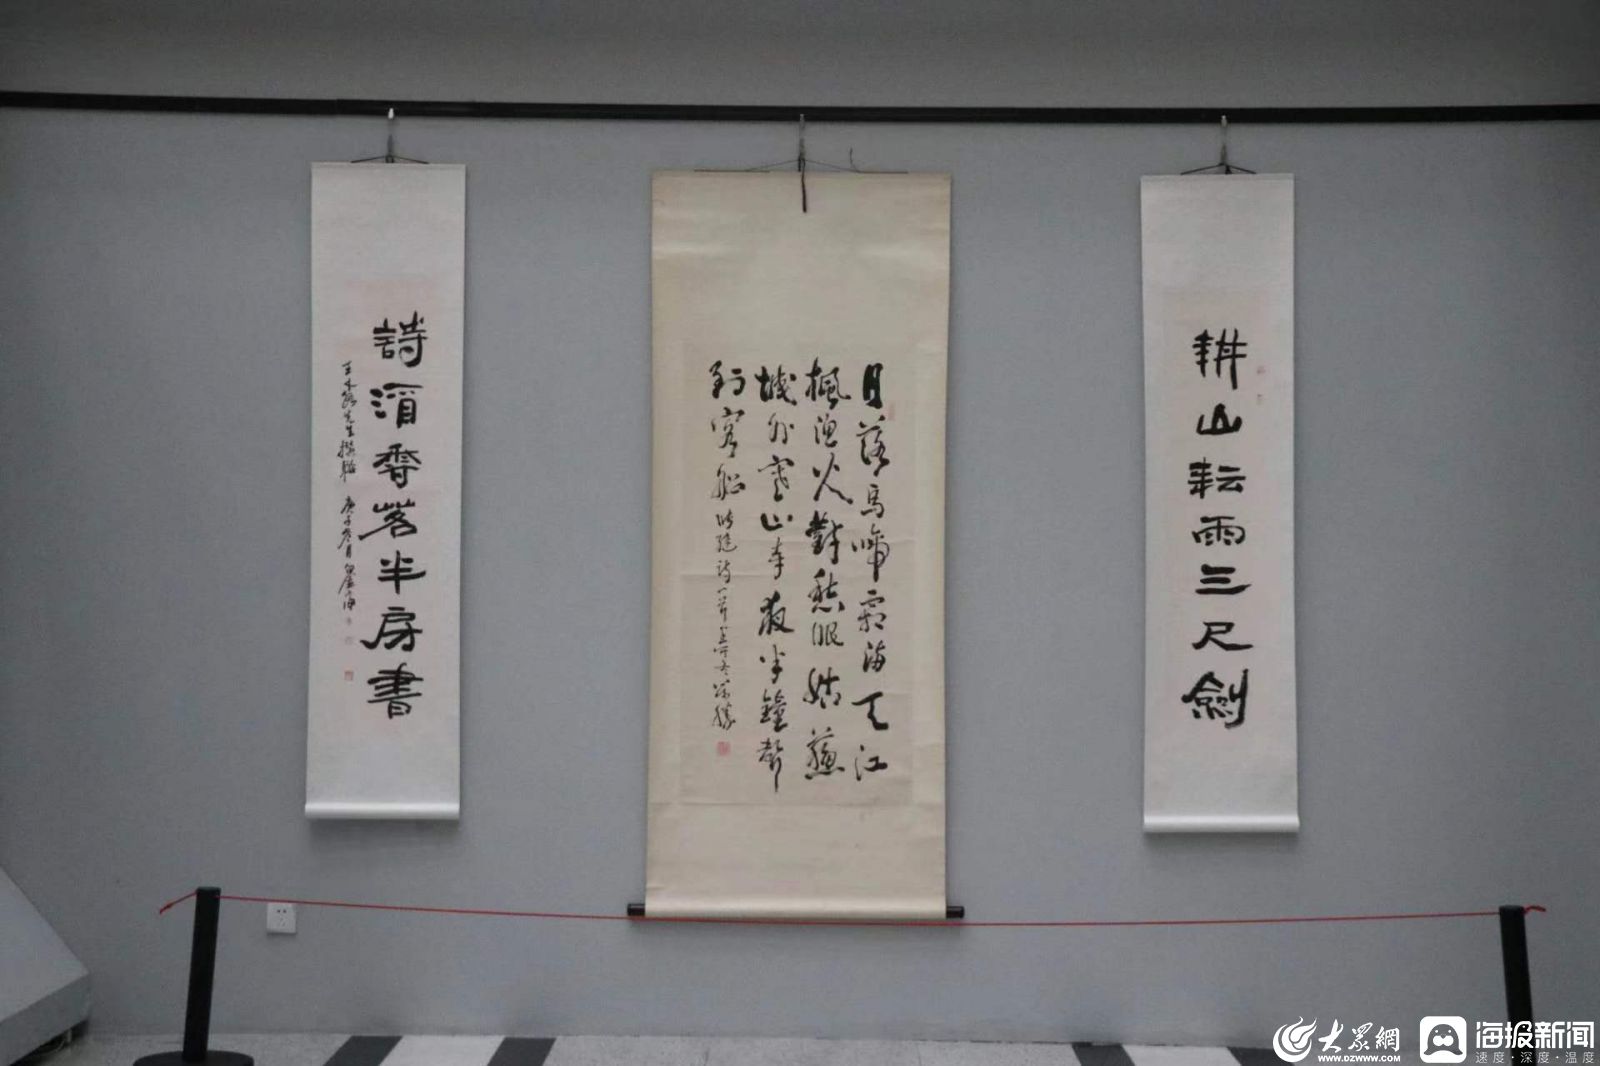 耕山耘雨三尺劍
月落烏啼霜滿天江
楓漁火對愁眠姑蘇
城外寒山寺夜半鐘聲
到客船 張繼詩一首
詩酒香茗半房書
先生撰聯 庚子
大眾網
WWW.DZWWW.COM
海报新闻
速度·深度·温度